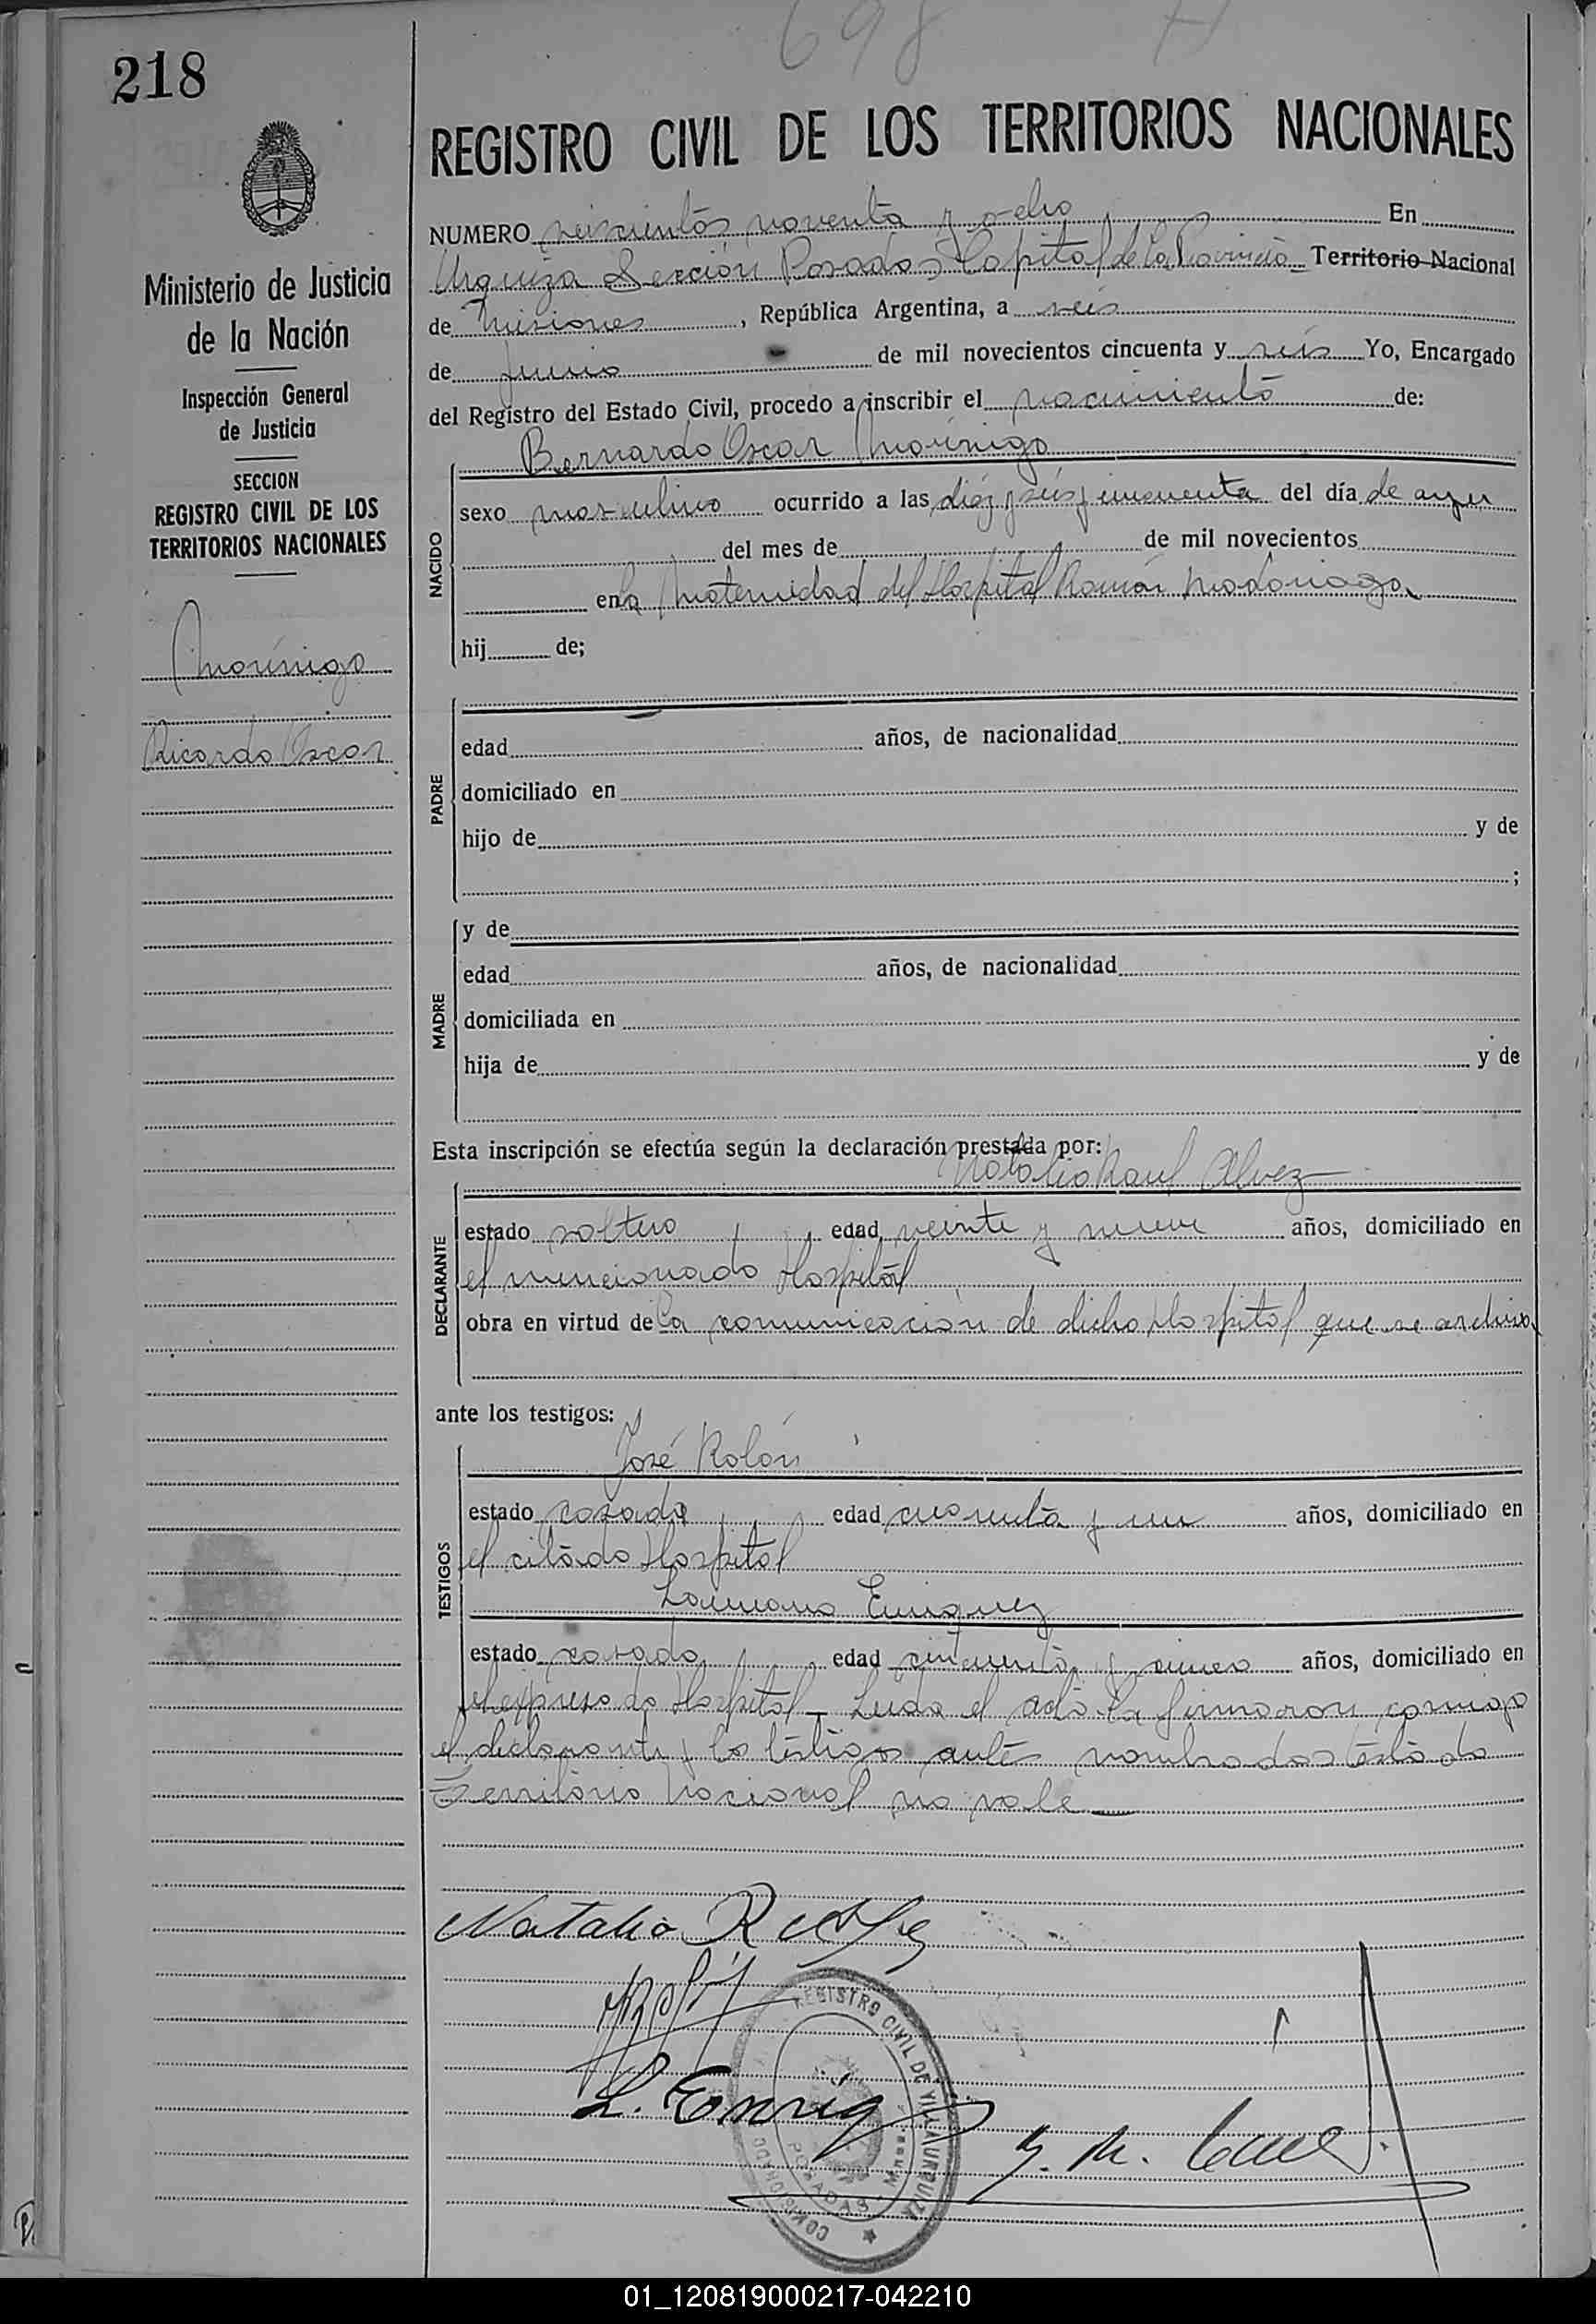 698
218
REGISTRO CIVIL DE LOS TERRITORIOS NACIONALES
NUMERO seiscientos noventa y ocho En
Urquiza Sección Posadas Capital de la Provincia Territorio Nacional
de Misiones, República Argentina, a seis
de junio de mil novecientos cincuenta y seis Yo, Encargado
del Registro del Estado Civil, procedo a inscribir el nacimiento de:
Ministerio de Justicia
de la Nación
Inspección General
de Justicia
SECCION
REGISTRO CIVIL DE LOS
TERRITORIOS NACIONALES
Morínigo
Ricardo Oscar
NACIDO
Bernardo Oscar Morínigo
sexo masculino ocurrido a las diez y seis y cincuenta del día de ayer
del mes de de mil novecientos
en la Maternidad del Hospital Ramón Madariaga
hij de;
PADRE
edad años, de nacionalidad
domiciliado en
hijo de y de
;
MADRE
y de
edad años, de nacionalidad
domiciliada en
hija de y de
Esta inscripción se efectúa según la declaración prestada por:
DECLARANTE
Natalio Raul Alvez
estado soltero edad veinte y nueve años, domiciliado en
el mencionado Hospital
obra en virtud de la comunicación de dicho Hospital que se archiva
ante los testigos:
TESTIGOS
José Rolón
estado casado edad cuarenta y un años, domiciliado en
el citado Hospital
Enriquez
estado casado edad cincuenta y cinco años, domiciliado en
el expresado Hospital - Leida el acta la firmaron conmigo
el declarante y los testigos antes nombrados testado
Territorio Nacional no vale
Natalio R
L. Enriq
REGISTRO CIVIL DE VILLA URQUIZA
POSADAS
01_120819000217-042210